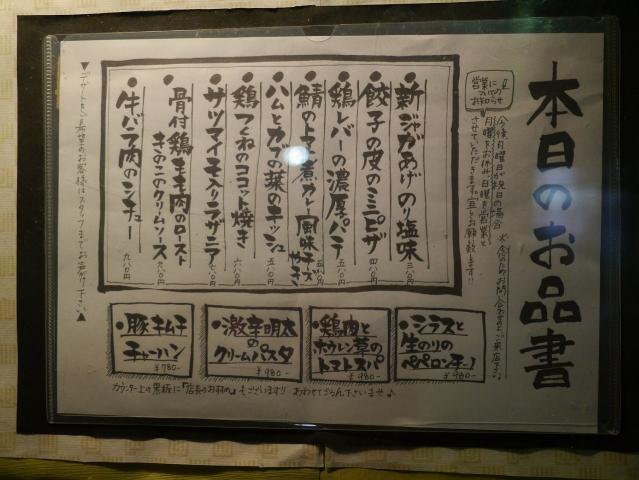 本日のお品書
営業に
ついての
お知らせ
今後月曜日が祝日の場合
月曜をお休み、日曜を営業と
させていただきます。宜しくお願い致します!!
新ジャガあげのり塩味
餃子の皮のミニピザ 四八〇円
鶏レバーの濃厚パテ
鯖のトマト煮カレー風味チーズやき
ハムとカブの葉のキッシュ 五八〇円
鶏つくねのココット焼き 六八〇円
サツマイモ入りラザニア
骨付鶏モモ肉のロースト
きのこのクリームソース 九八〇円
牛バラ肉のシチュー 九八〇円
▼デザートをご希望のお客様はスタッフまでお声がけ下さい▲
シラスと
生のりの
ペペロンチーノ
¥980-
鶏肉と
ホウレン草の
トマトスパ
¥980-
激辛明太
の
クリームパスタ
¥980-
豚キムチ
チャーハン
¥780-
カウンター上の黒板に「店長のおすすめ」もございます!! あわせてごらん下さいませ♪